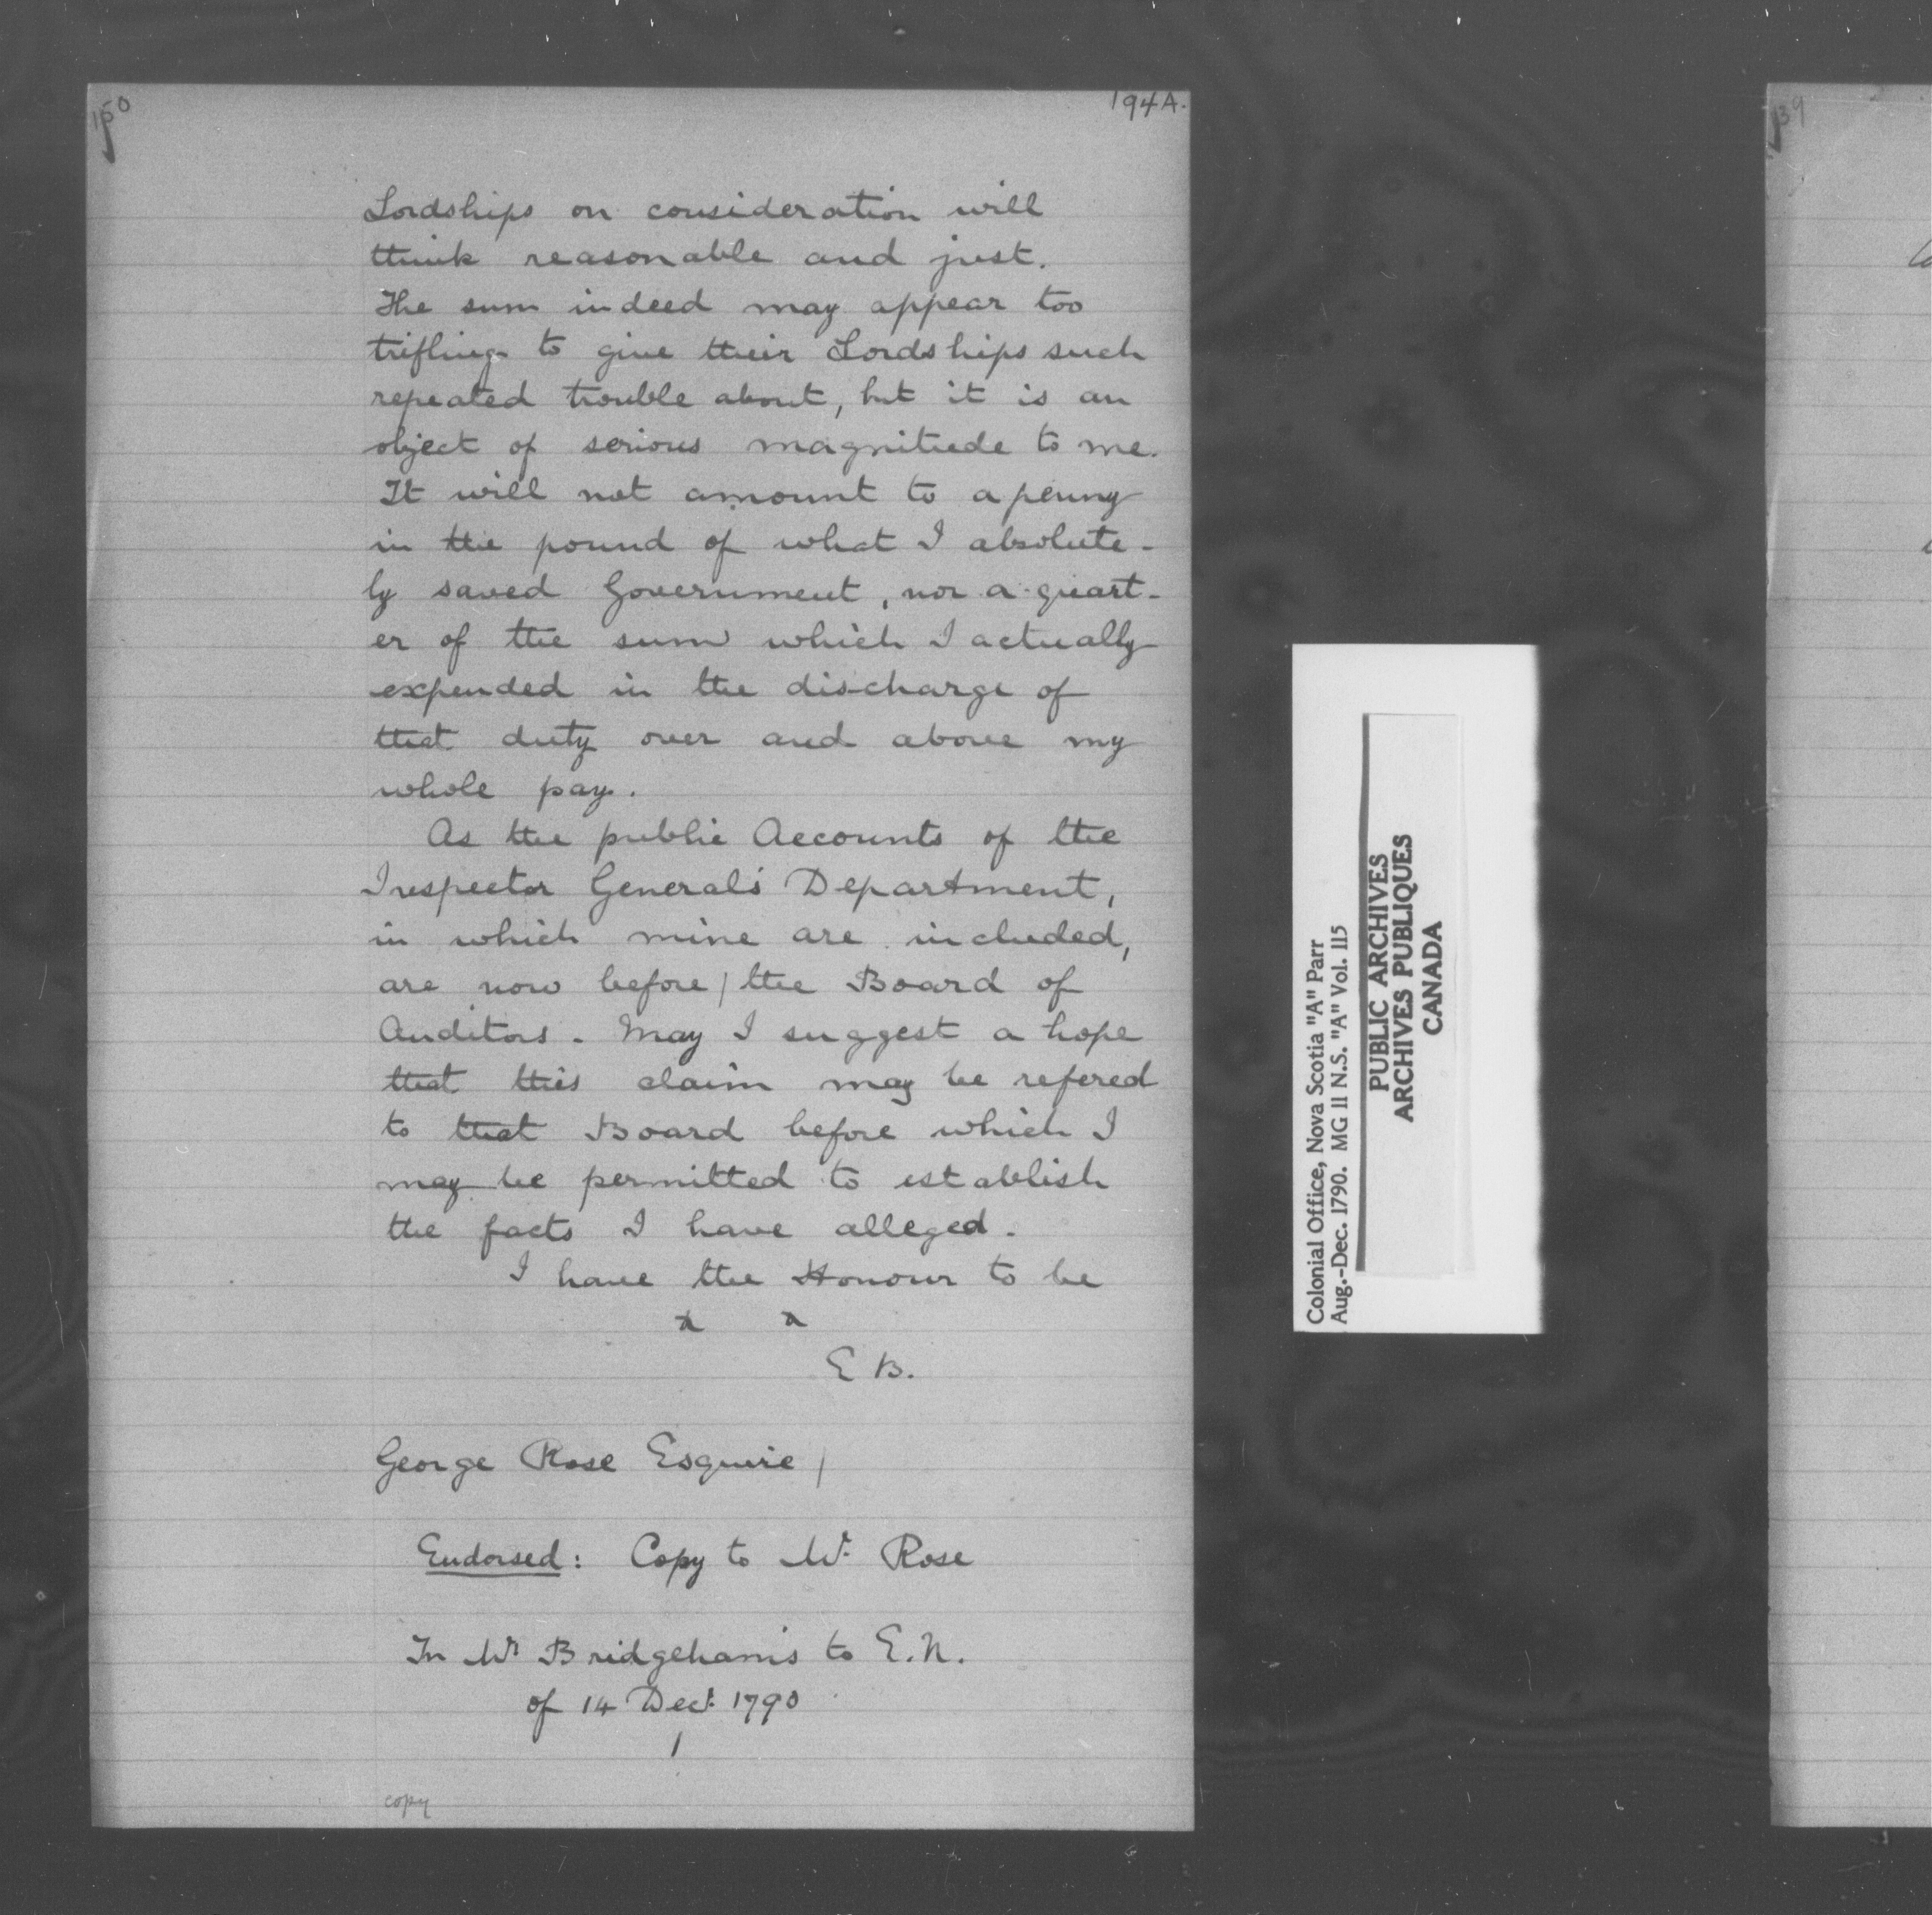 150
194A.
Lordships on consideration will
think reasonable and just.
The sum indeed may appear too
trifling to give their Lordships such
repeated trouble about, but it is an
object of serious magnitude to me.
It will not amount to a penny
in the pound of what I absolute-
ly saved Government, nor a quart-
er of the sum which I actually
expended in the discharge of
that duty over and above my
whole pay.
As the public Accounts of the
Inspector General's Department,
in which mine are included,
are now before / the Board of
Auditors. May I suggest a hope
that this claim may be refered
to that Board before which I
may be permitted to establish
the facts I have alleged.
I have the Honour to be
x x
E B.
George Rose Esquire /
Endorsed: Copy to Mr. Rose
In Mr Bridgeham's to E.N.
of 14 Decr. 1790
/
copy
Colonial Office, Nova Scotia "A" Parr
Aug.-Dec. 1790. MG 11 N.S. "A" Vol. 115
PUBLIC ARCHIVES
ARCHIVES PUBLIQUES
CANADA
139